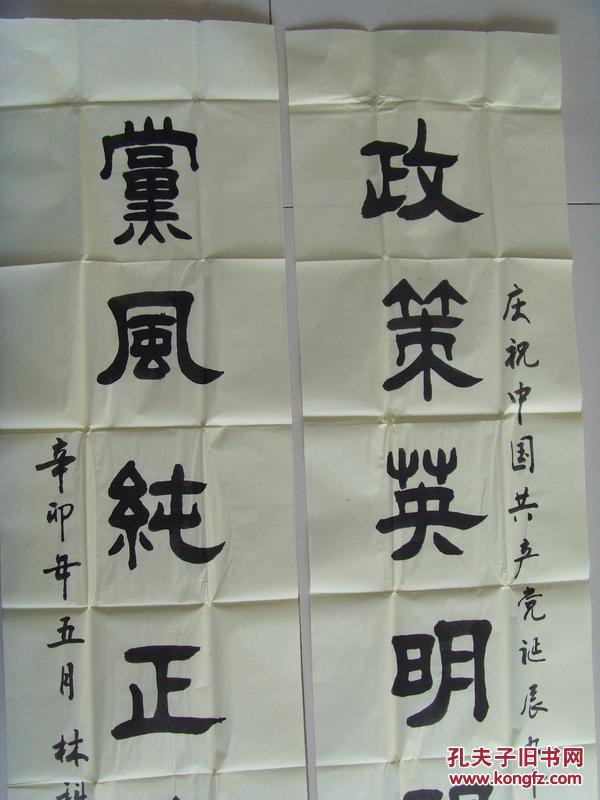 庆祝中国共产党诞辰九十
政策英明
黨風純正
辛卯年五月 林
孔夫子旧书网
www.kongfz.com